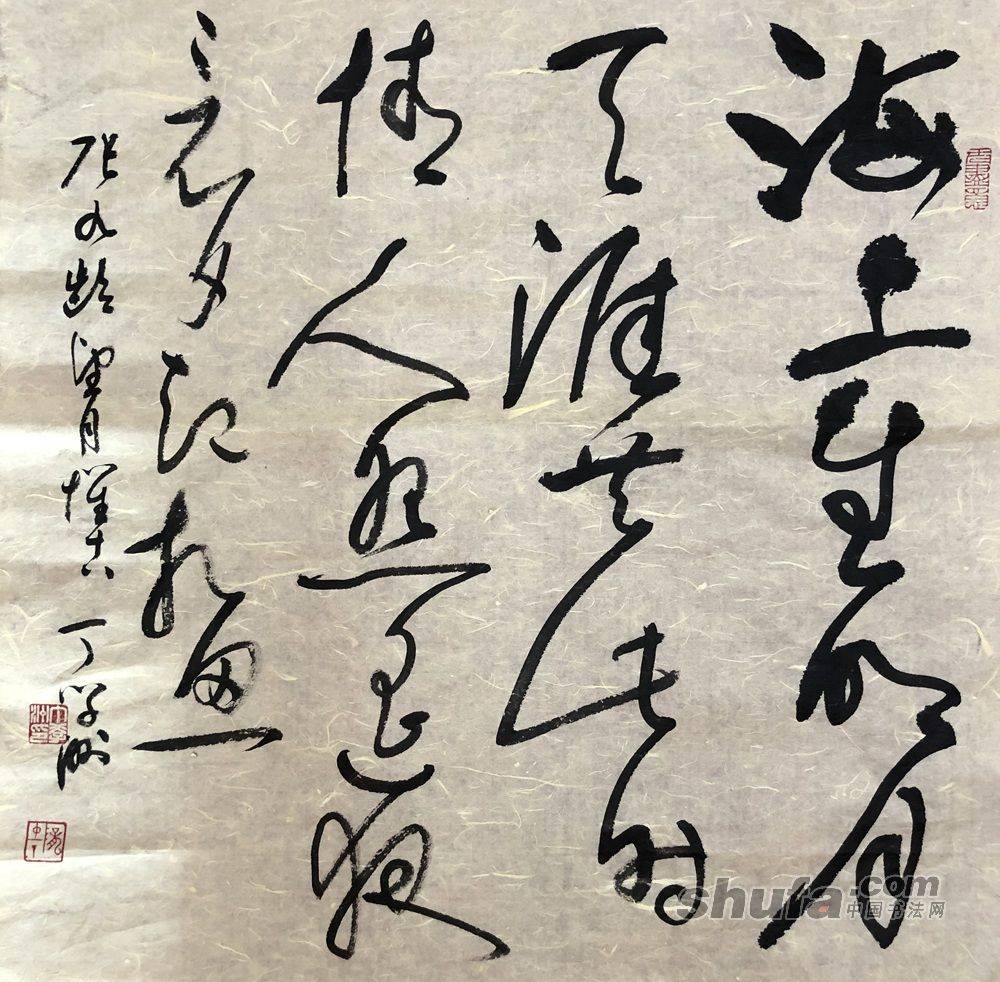 海上生明月
天涯共此时
情人怨遥夜
竟夕起相思
张九龄望月怀古 丁学洲
shufa.com
中国书法网